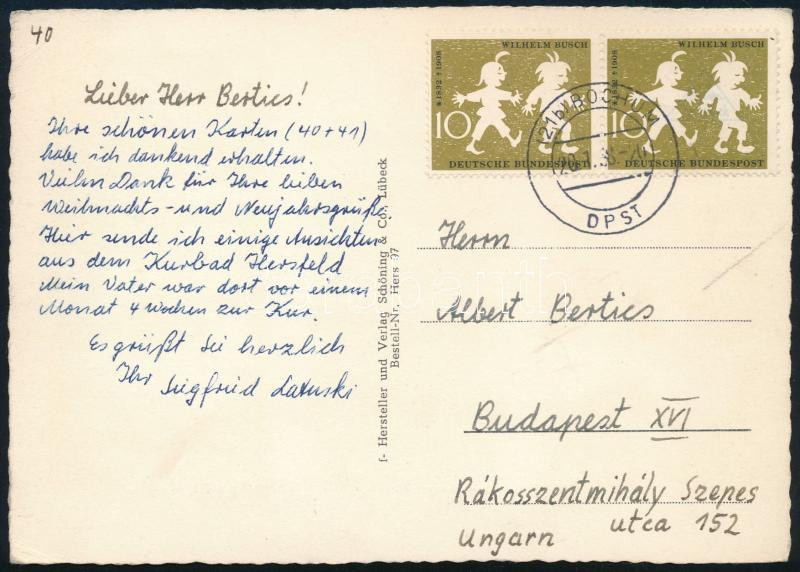 40
Lieber Herr Bertics!
Ihre schönen Karten (40+41)
habe ich dankend erhalten.
Vielen Dank für Ihre lieben
Weihnachts- und Neujahrsgrüße.
Hier sende ich einige Ansichten
aus dem Kurbad Hersfeld
Mein Vater war dort vor einem
Monat 4 Wochen zur Kur.
Es grüßt Sie herzlich
Ihr Siegfried
f- Hersteller und Verlag Schöning & Co., Lübeck
Bestell-Nr. Hers 97
WILHELM BUSCH
* 1832 † 1908
10
DEUTSCHE BUNDESPOST
WILHELM BUSCH
* 1832 † 1908
10
DEUTSCHE BUNDESPOST
(21b) BOCHUM
DPST
Herrn
Albert Bertics
Budapest XVI
Rákosszentmihály Szepes
utca 152
Ungarn